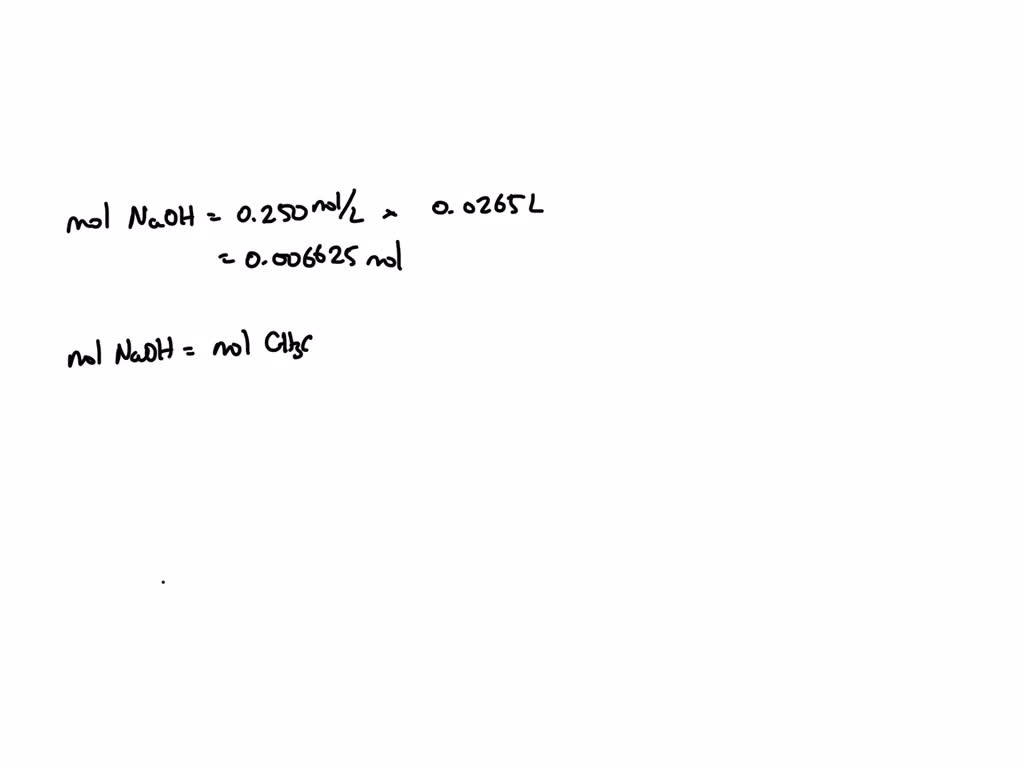 mol NaOH = 0.250 mol/L × 0.0265 L
= 0.006625 mol
mol NaOH = mol CH3C